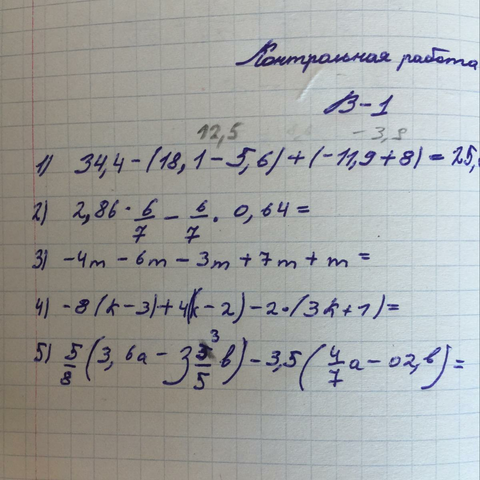 Контрольная работа
В-1
12,5 -3,9
1) 34,4 - (18,1 - 5,6) + (-11,9 + 8) = 25,
2) 2,86 · 6/7 - 6/7 · 0,64 =
3) -4m - 6m - 3m + 7m + m =
4) -8(k-3)+4(k-2)-2·(3k+1)=
5) 5/8 (3,6a - 3 3/5 b) - 3,5 (4/7 a - 02, b) =